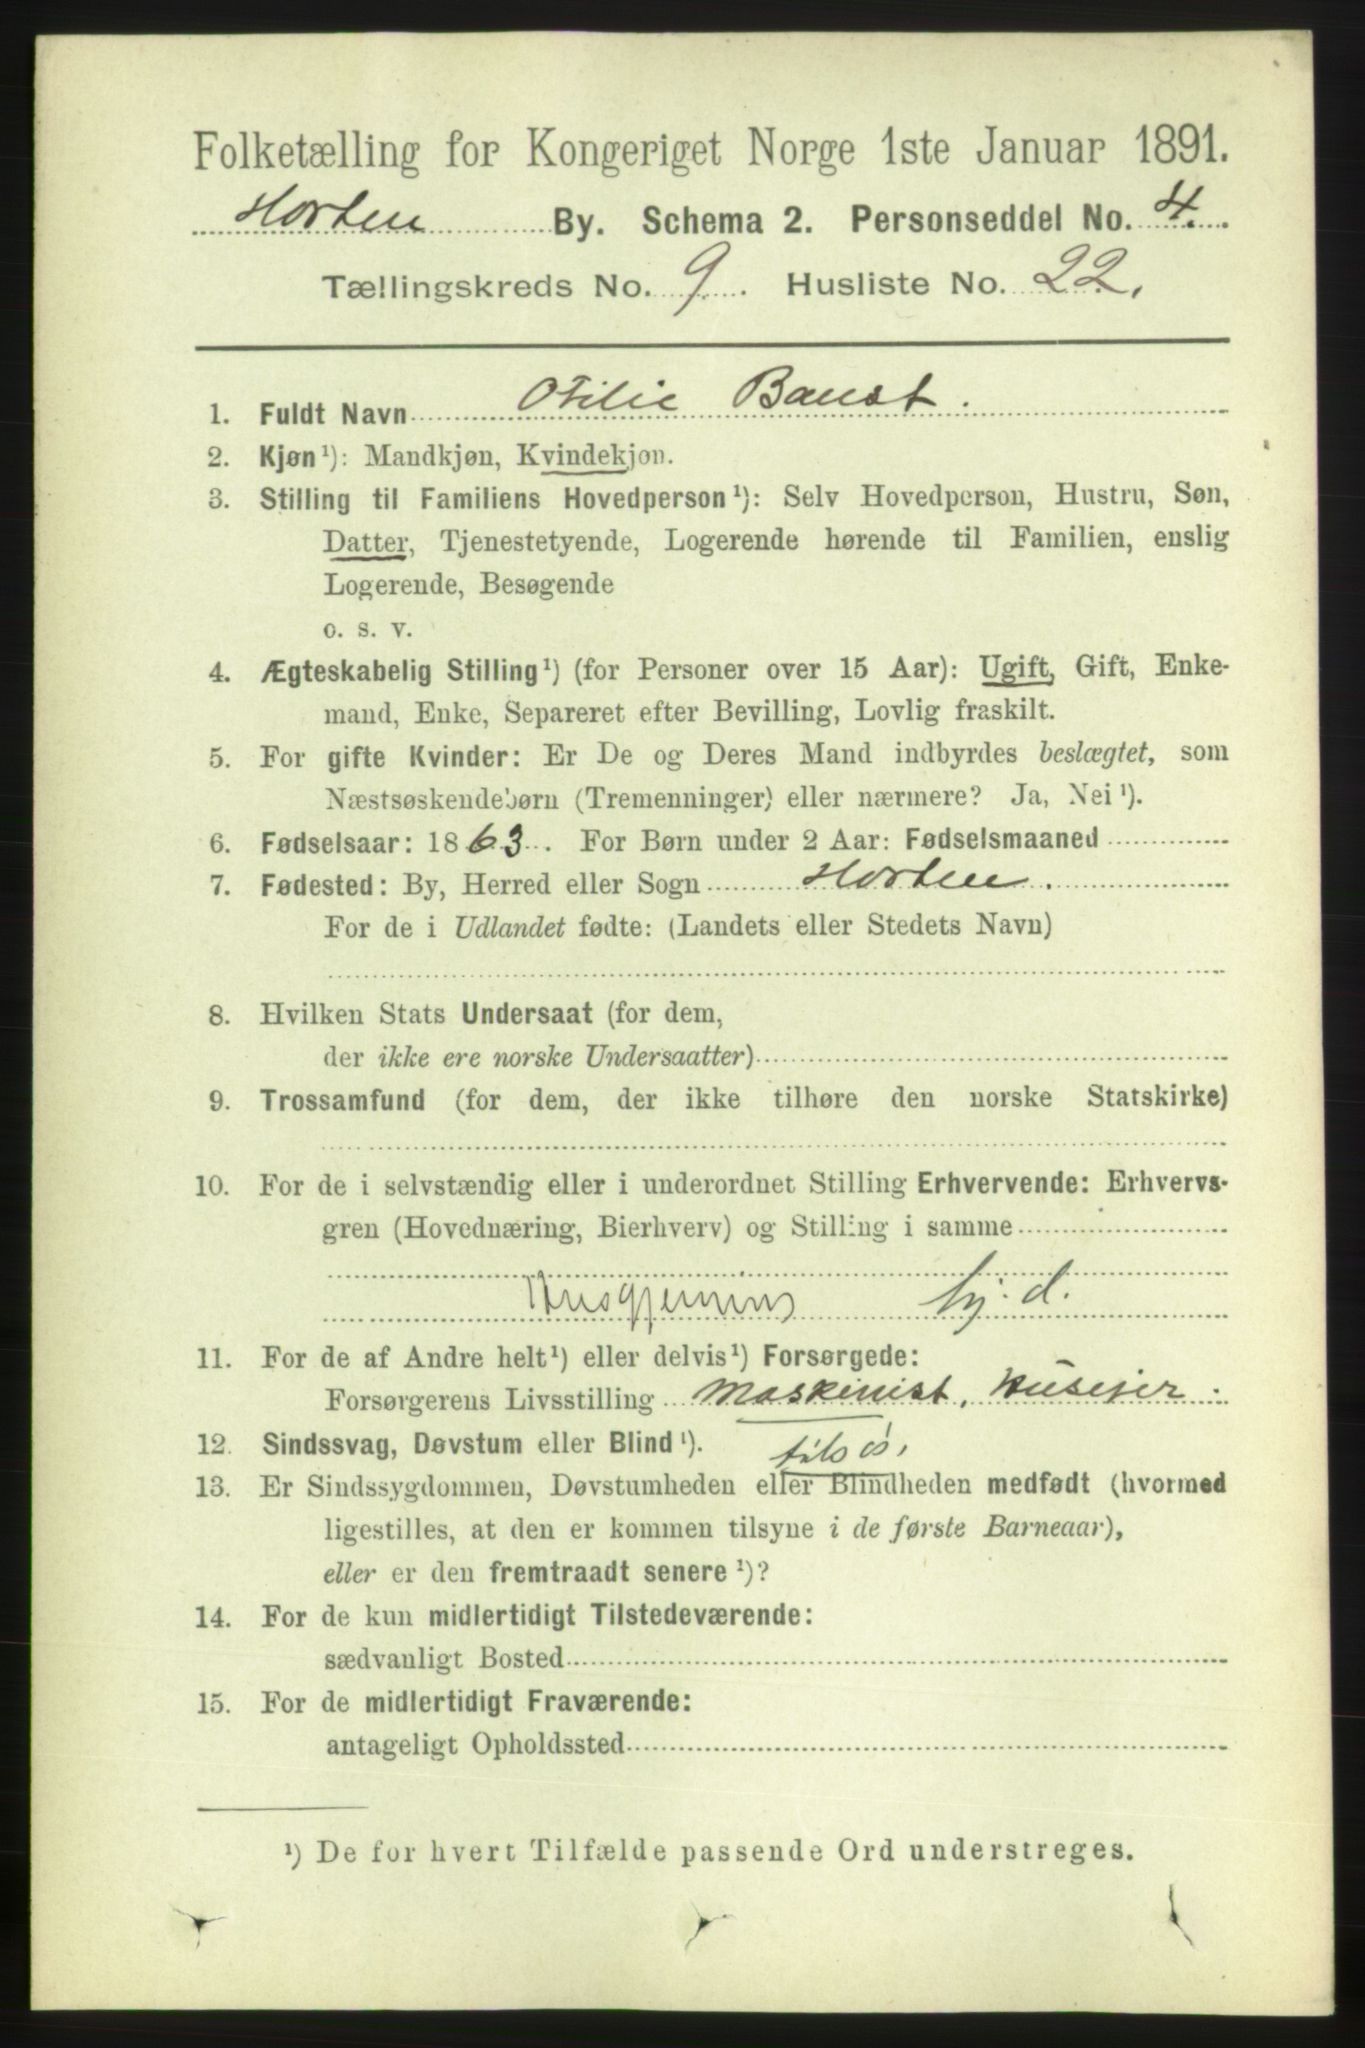 Folketælling for Kongeriget Norge 1ste Januar 1891.
Horten By. Schema 2. Personseddel No. 4.
Tællingskreds No. 9. Husliste No. 22.
1. Fuldt Navn Otilie Baust.
2. Kjøn¹): Mandkjøn, Kvindekjøn.
3. Stilling til Familiens Hovedperson¹): Selv Hovedperson, Hustru, Søn,
Datter, Tjenestetyende, Logerende hørende til Familien, enslig
Logerende, Besøgende
o. s. v.
4. Ægteskabelig Stilling¹) (for Personer over 15 Aar): Ugift, Gift, Enke-
mand, Enke, Separeret efter Bevilling, Lovlig fraskilt.
5. For gifte Kvinder: Er De og Deres Mand indbyrdes beslægtet, som
Næstsøskendebørn (Tremenninger) eller nærmere? Ja, Nei¹).
6. Fødselsaar: 1863. For Børn under 2 Aar: Fødselsmaaned
7. Fødested: By, Herred eller Sogn Horten.
For de i Udlandet fødte: (Landets eller Stedets Navn)
8. Hvilken Stats Undersaat (for dem,
der ikke ere norske Undersaatter)
9. Trossamfund (for dem, der ikke tilhøre den norske Statskirke)
10. For de i selvstændig eller i underordnet Stilling Erhvervende: Erhvervs-
gren (Hovednæring, Bierhverv) og Stilling i samme
Husgjerning hj. d.
11. For de af Andre helt¹) eller delvis¹) Forsørgede:
Forsørgerens Livsstilling Maskinist, Husejer.
12. Sindssvag, Døvstum eller Blind¹).
13. Er Sindssygdommen, Døvstumheden eller Blindheden medfødt (hvormed
ligestilles, at den er kommen tilsyne i de første Barneaar),
eller er den fremtraadt senere¹)?
14. For de kun midlertidigt Tilstedeværende:
sædvanligt Bosted
15. For de midlertidigt Fraværende:
antageligt Opholdssted
¹) De for hvert Tilfælde passende Ord understreges.